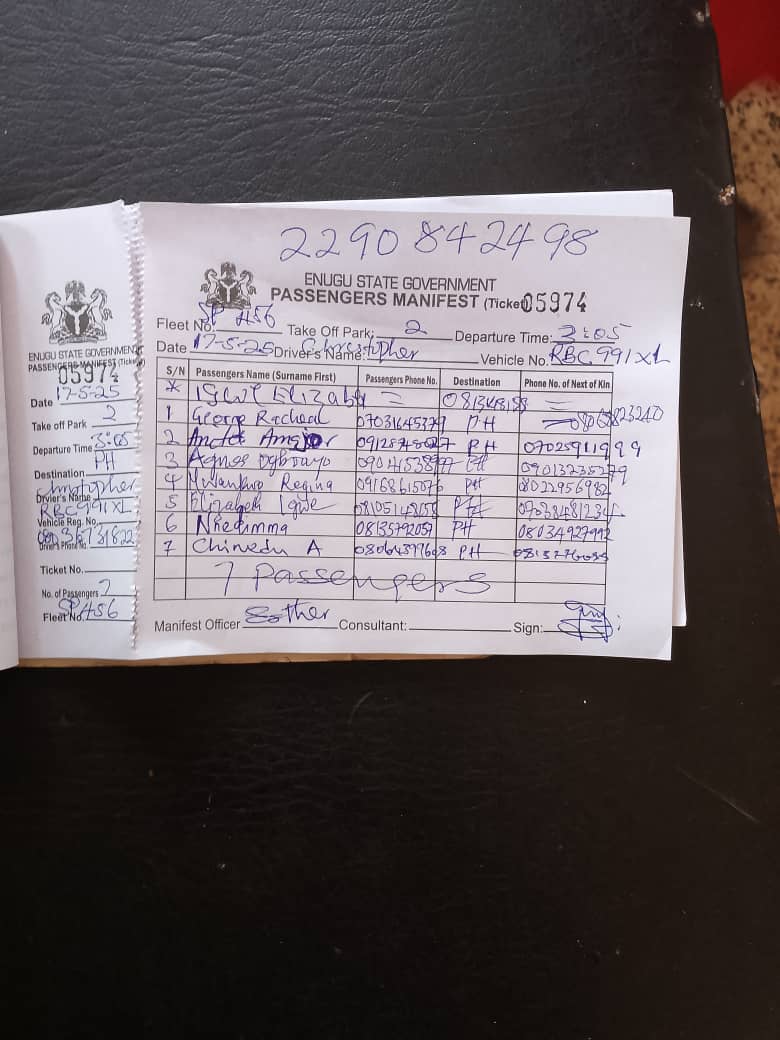 ENUGU STATE GOVERNMENT
PASSENGERS MANIFEST (Ticket
05974
Date 17-5-25
Take off Park 2
Departure Time 3:05
Destination PH
Christopher
Driver's Name
RBC 991 XL
Vehicle Reg. No.
Driver's Phone No.
Ticket No.
No. of Passengers 7
Fleet No. SP A56
2290842498
ENUGU STATE GOVERNMENT
PASSENGERS MANIFEST (Ticket 05974
Fleet No. SP A56 Take Off Park: 2 Departure Time: 3:05
Date 17-5-25 Driver's Name: Christopher Vehicle No. RBC 991 XL
S/N Passengers Name (Surname First) Passengers Phone No. Destination Phone No. of Next of Kin
* Igwe
1 George Racheal 07031645379 PH
2 PH 07025911999
3 Agnes PH 09013235279
4 Nwankwo Regina 09168615076 PH 08022956982
5 Elizabeth Igwe PH
6 08135792057 PH 08034927992
7 Chinedu A PH
7 Passengers
Manifest Officer Esther Consultant: Sign: